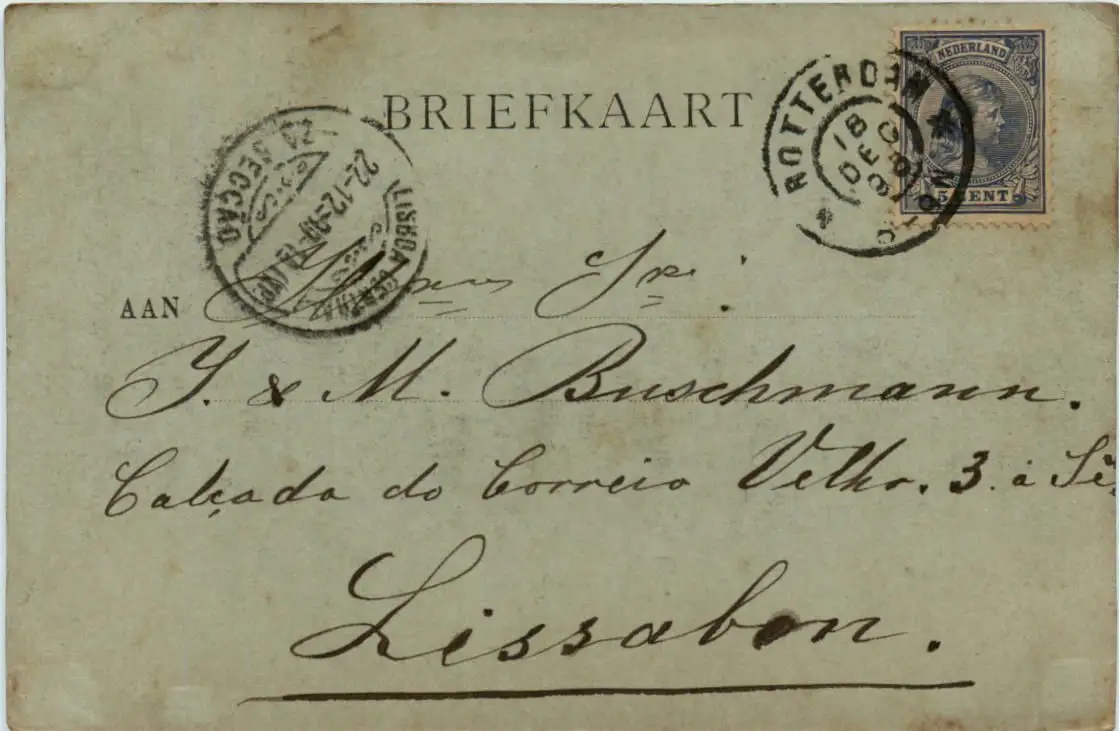 BRIEFKAART
NEDERLAND
5 CENT
ROTTERDAM
18 DEC
2A SECCAO
LISBOA CENTRAL
22-12-90
AAN
J. & M. Buschmann.
Calçada do Correio Velho. 3. á Sé.
Lissabon.